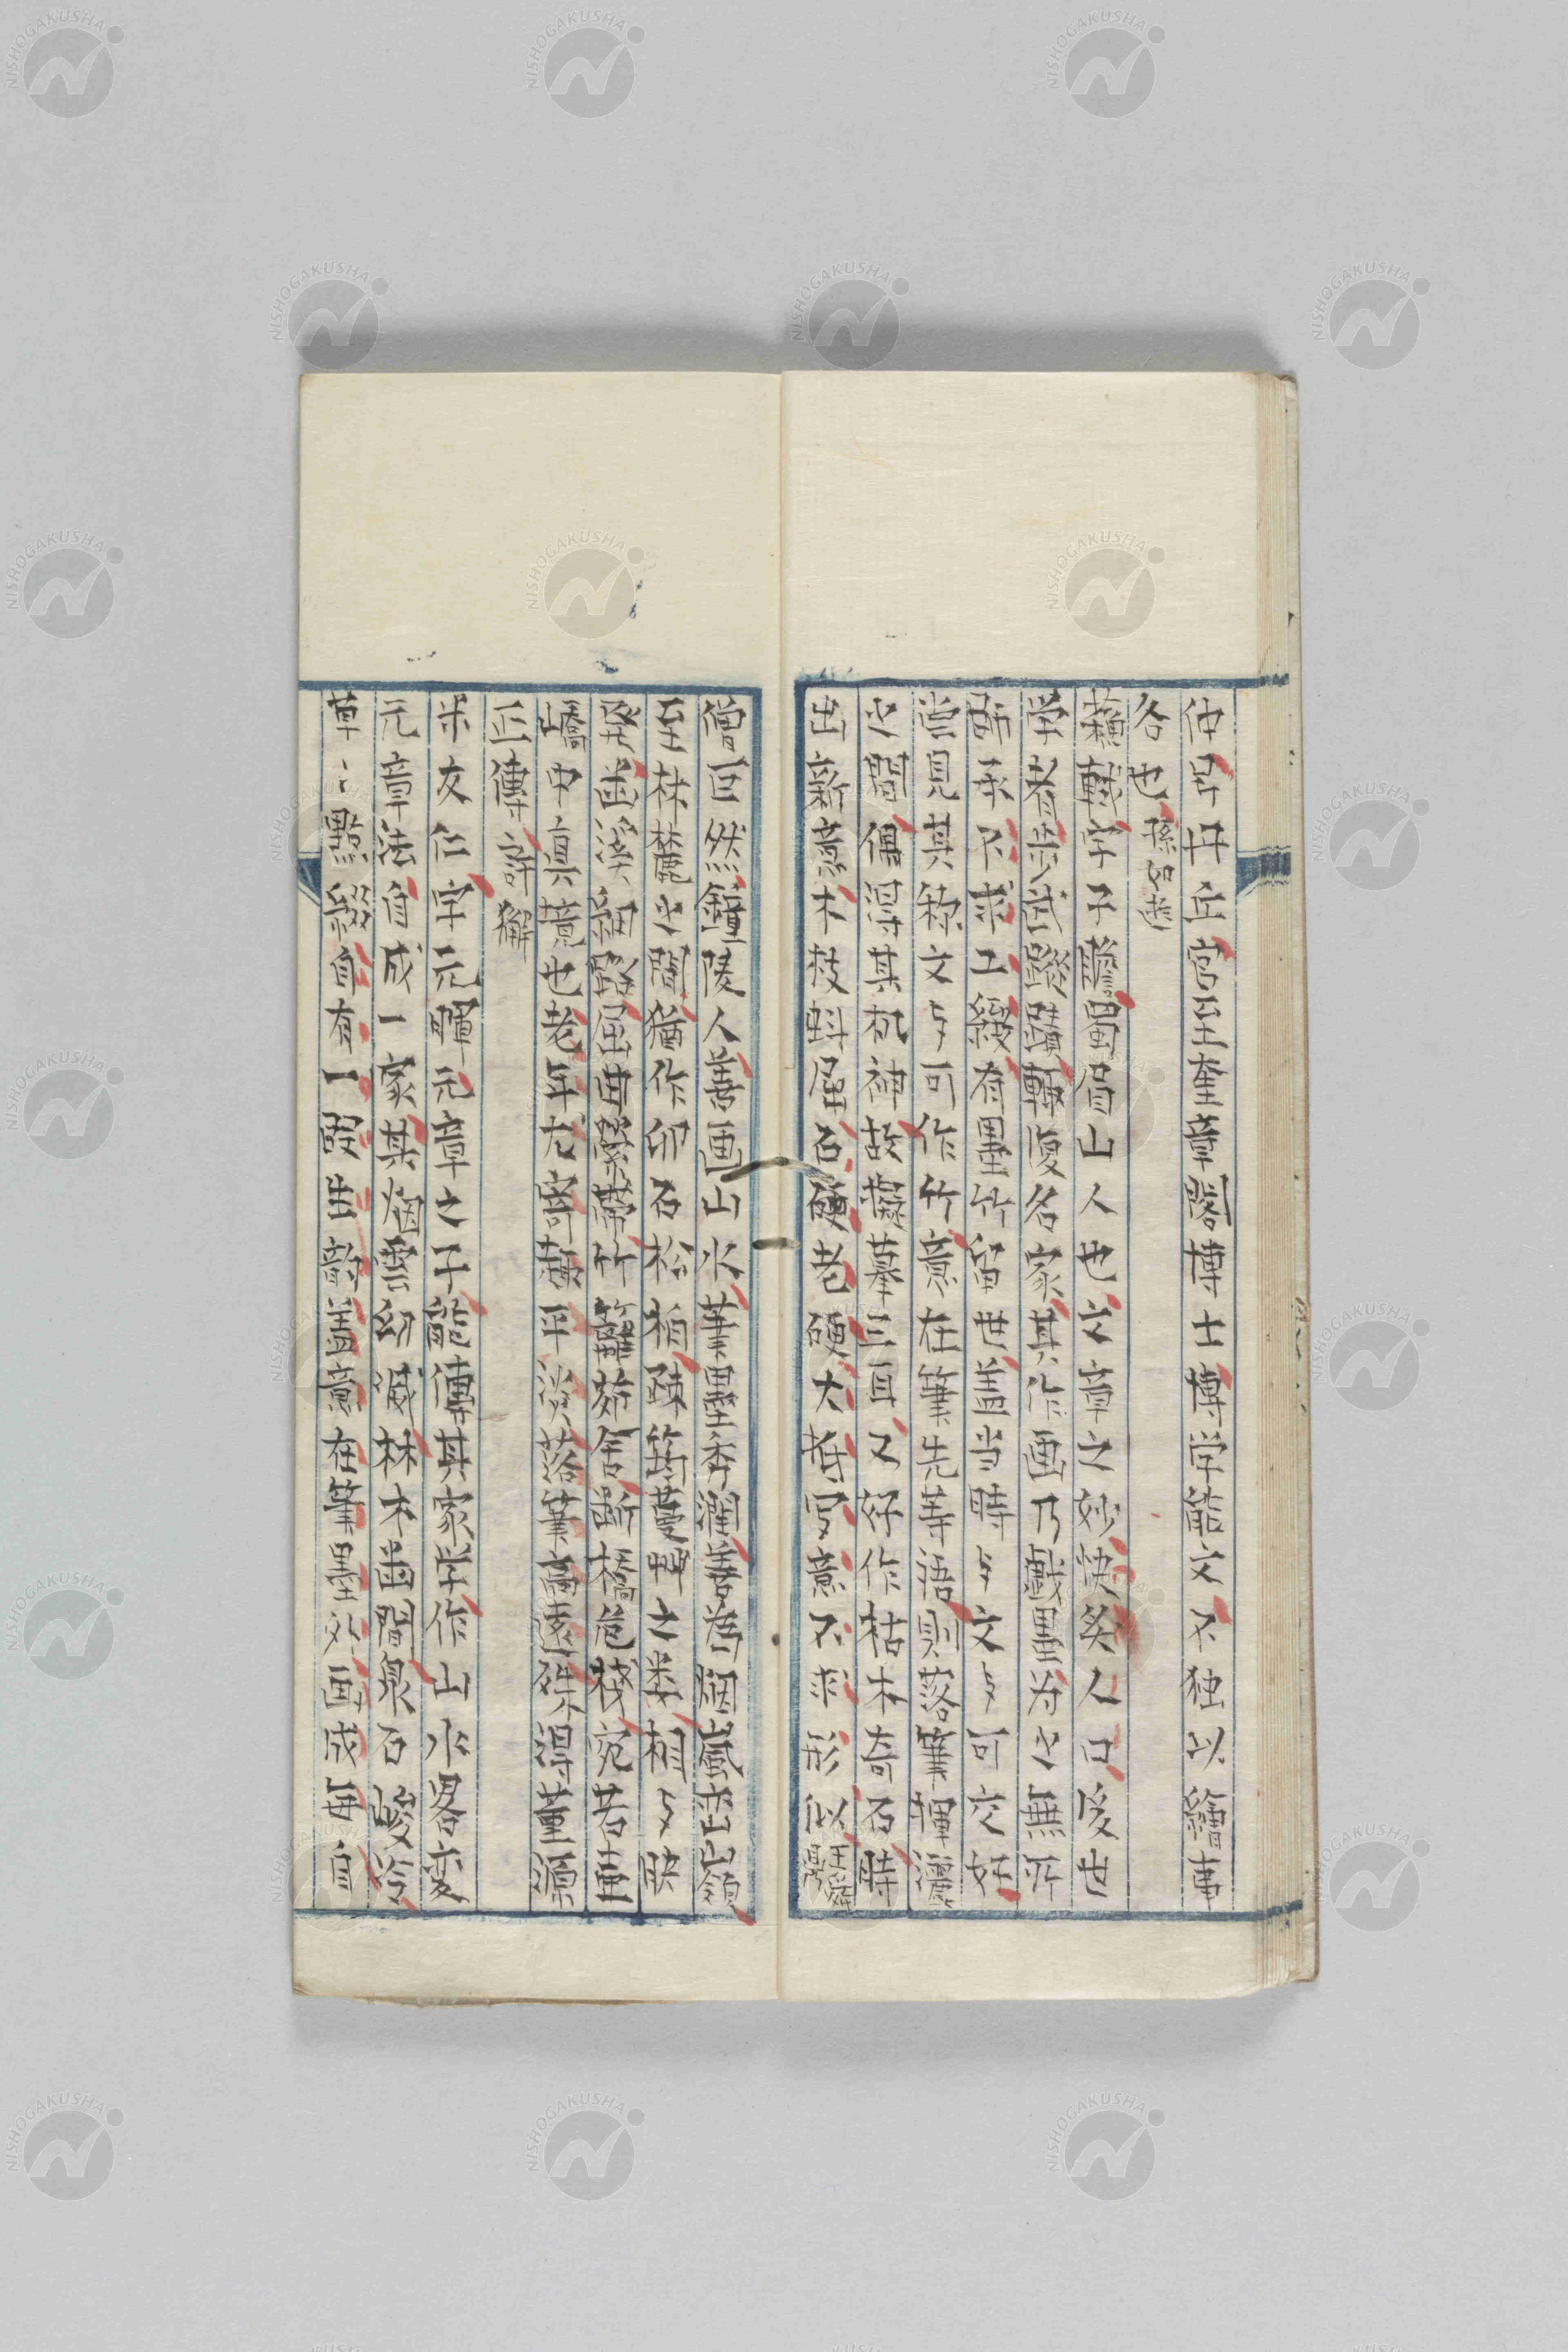 仲号丹丘官至奎章閣博士博学能文不独以繪事
名也
蘓軾字子瞻蜀眉山人也文章之妙快炙人口後世
学者歩武蹤蹟轉復名家其作画乃戯墨为之無所
師承不求工緻有墨竹留世盖当時与文与可交好
尝見其称文与可作竹意在筆先苐浯則落筆揮灑
之間偶得其机神故擬摹三耳又好作枯木奇石時
出新意木枝蚪屈石硬老硬大抵写意不求形似
僧巨然鐘陵人善画山水筆墨秀潤善為烟嵐峦嶺
至林麓之間猶作卵石松柏疎筠蔓艸之类相与映
發幽溪細路屈曲縈帶竹籬茆舍断橋危棧宛若山
嶠中真境也老年尤寄趣平淡落筆高遠殊得董源
正傳
米友仁字元暉元章之子能傳其家学作山水畧変
元章法自成一家其烟雲幻滅林木幽間泉石峻冷
草々點綴自有一段生韵盖意在筆墨外画成每自